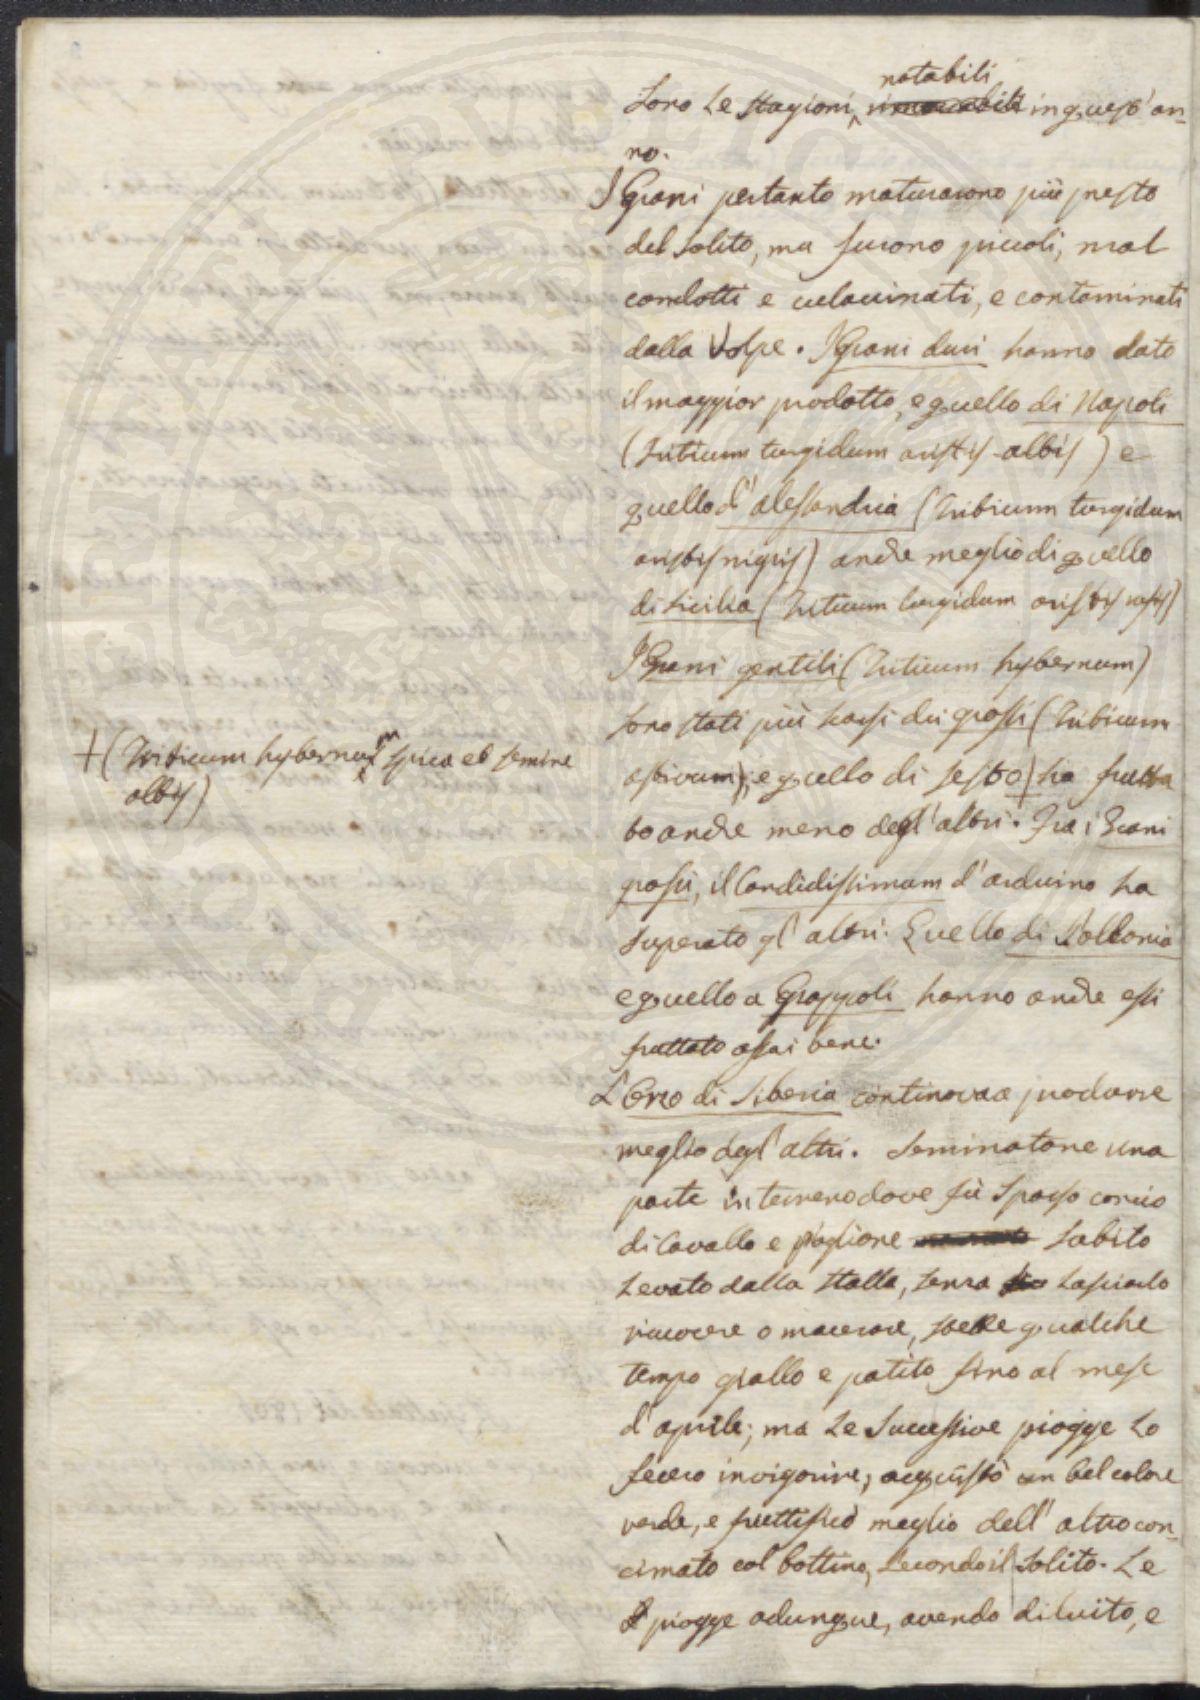 notabili
sono le stagioni, rimarcabili in quest'an-
no.
I Grani pertanto maturarono più presto
del solito, ma furono piccoli, mal
condotti e volacinati, e contaminati
dalla Volpe. I Grani duri hanno dato
il maggior prodotto, e quello di Napoli
(Triticum turgidum aristis albis) e
quello d'Alessandria (Triticum turgidum
aristis nigris) anche meglio di quello
di Sicilia (Triticum turgidum aristis rufis)
I Grani gentili (Triticum hybernum)
sono stati più scarsi dei grossi (Triticum
æstivum); e quello di Sesto + ha frutta
to anche meno degl'altri. Fra i Grani
+ (Triticum hybernum spica et semine
albis)
grossi, il Candidissimum d'Arduino ha
superato gl'altri. Quello di Pollonia
e quello a Grappoli hanno anche essi
fruttato assai bene.
L'Orzo di Siberia continova a produrre
meglio degl'altri. Seminatone una
parte in terreno dove fù sparso concio
di Cavallo e paglione subito
levato dalla stalla, senza lasciarlo
ricuocere o macerare, stette qualche
tempo giallo e patito fino al mese
d'aprile; ma le successive piogge lo
fecero invigorire, acquistò un bel colore
verde, e fruttificò meglio dell'altro con-
cimato col bottino, secondo il solito. Le
piogge adunque, avendo diluito, e